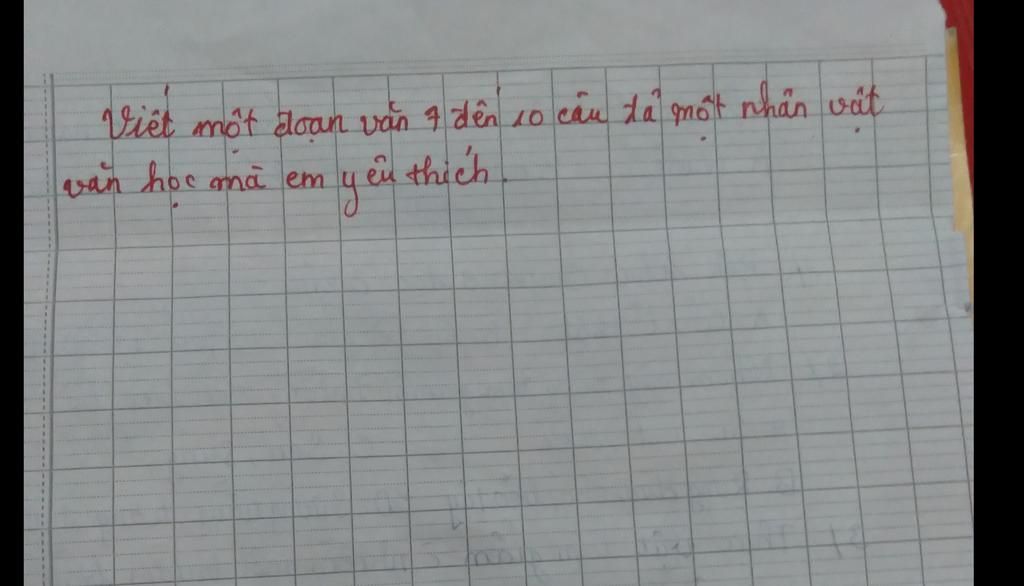 Viết một đoạn văn 7 đến 10 câu tả một nhân vật
văn học mà em yêu thích.